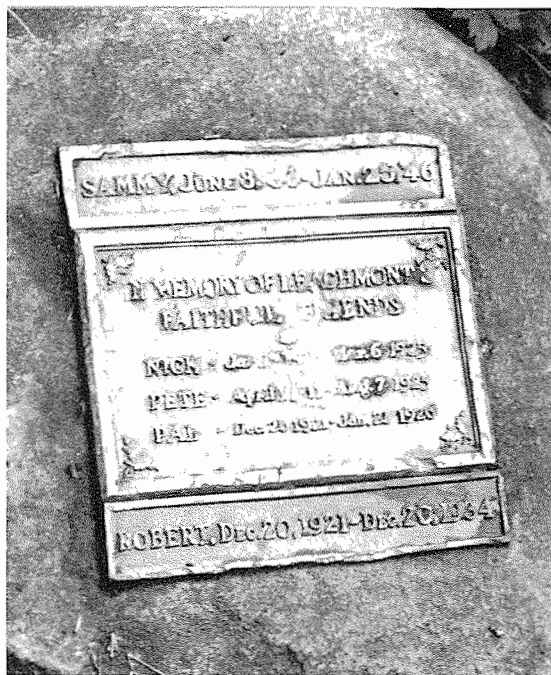 SAMMY, JUNE 8, -JAN. 25, '46
IN MEMORY OF LEACHMONT'S
FAITHFUL FRIENDS
NICK - 6 1925
PETE - April - Aug 7 1925
PAL - Dec 1921 - Jan. 21 1926
ROBERT, DEC. 20, 1921-DEC. 20, 1934